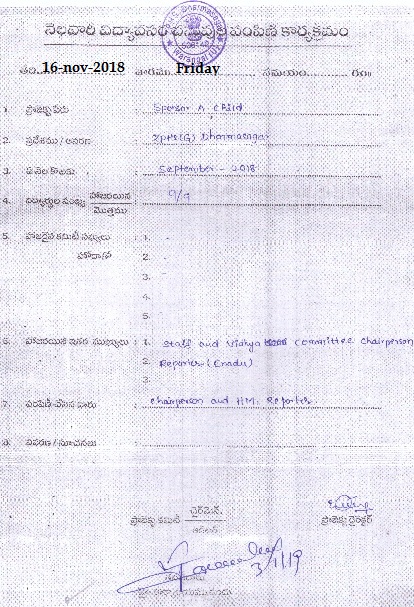 నెలవారి విద్యావసర వస్తువుల పంపిణీ కార్యక్రమం
తేది. 16-nov-2018 వారము Friday సమయం.......... గం॥
1. ప్రాజెక్టు పేరు : Sponsor A child
2. ప్రదేశము / ఆవరణ : ZPHS(G) Dharmasagar
3. ఏ నెల కొరకు : September - 2018
4. విద్యార్థుల సంఖ్య హాజరయిన / మొత్తము : 9/9
5. హాజరైన కమిటీ సభ్యులు : 1.
హోదాలో 2.
3.
4.
5.
6. హాజరయిన ఇతర ముఖ్యులు : 1. Staff and Vidhya committee chairperson
2. Reporter (Enadu)
3.
7. పంపిణీ చేసిన వారు : chairperson and HM, Reporter.
8. వివరణ / సూచనలు :
ప్రాజెక్టు కమిటీ ఛైర్మెన్.
ప్రాజెక్టు డైరెక్టర్
3/1/19